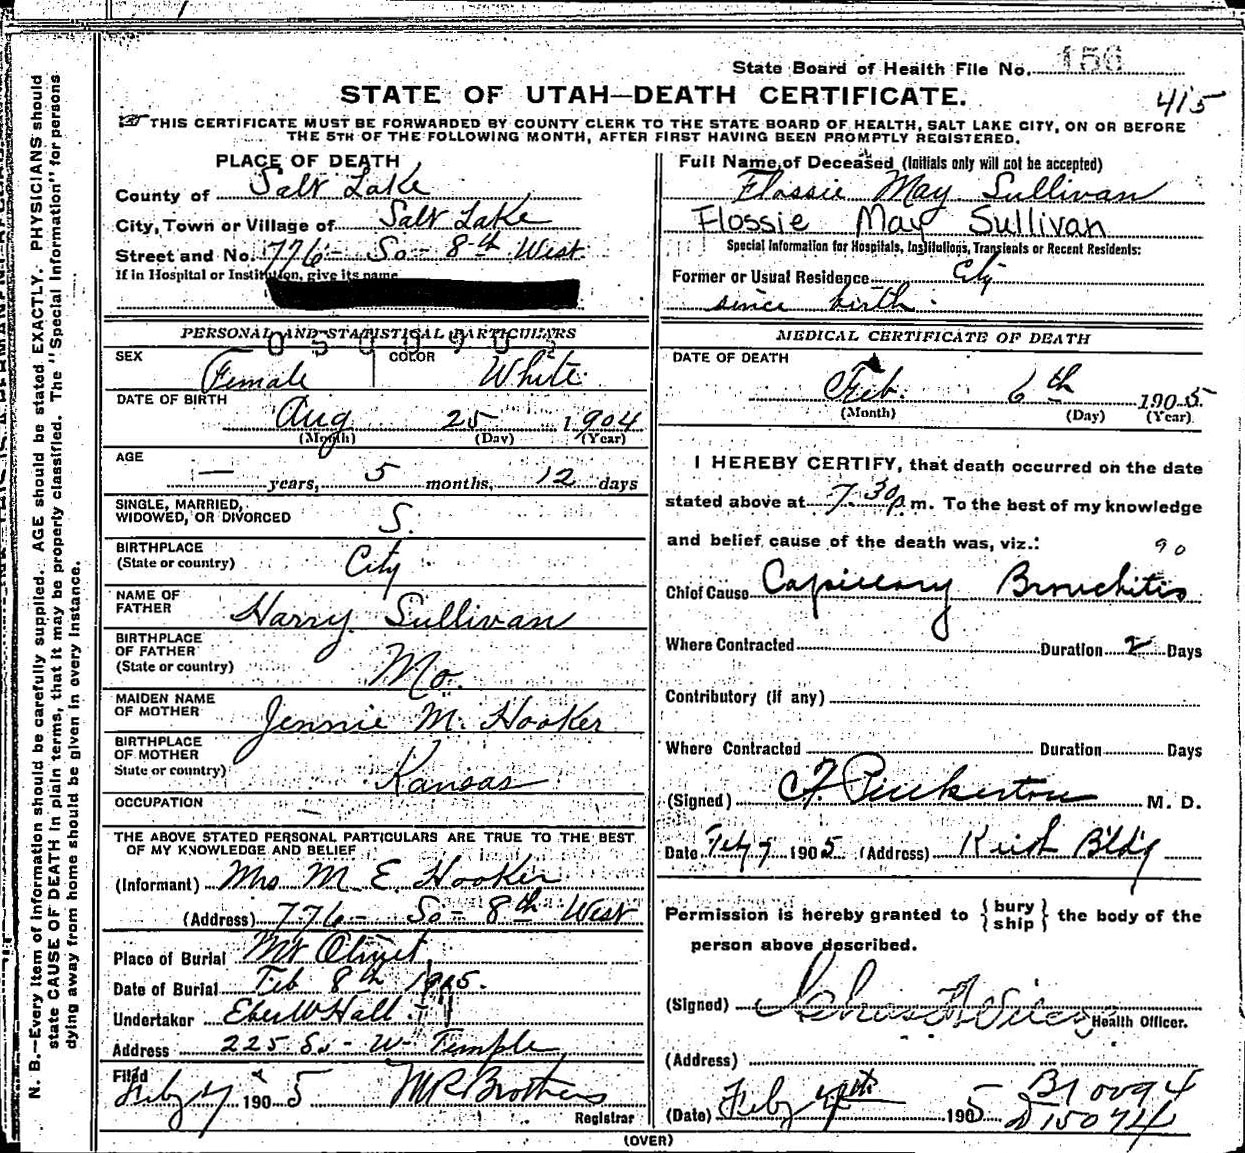 State Board of Health File No. 156
STATE OF UTAH—DEATH CERTIFICATE.
415
THIS CERTIFICATE MUST BE FORWARDED BY COUNTY CLERK TO THE STATE BOARD OF HEALTH, SALT LAKE CITY, ON OR BEFORE
THE 5TH OF THE FOLLOWING MONTH, AFTER FIRST HAVING BEEN PROMPTLY REGISTERED.
PLACE OF DEATH
County of Salt Lake
City, Town or Village of Salt Lake
Street and No. 776 - So - 8th West
If in Hospital or Institution, give its name
PERSONAL AND STATISTICAL PARTICULARS
SEX Female COLOR White
DATE OF BIRTH
Aug 25 1904
(Month) (Day) (Year)
AGE
— years, 5 months, 12 days
SINGLE, MARRIED,
WIDOWED, OR DIVORCED S.
BIRTHPLACE
(State or country) City
NAME OF
FATHER Harry Sullivan
BIRTHPLACE
OF FATHER
(State or country) Mo.
MAIDEN NAME
OF MOTHER Jennie M. Hooker
BIRTHPLACE
OF MOTHER
State or country) Kansas
OCCUPATION —
THE ABOVE STATED PERSONAL PARTICULARS ARE TRUE TO THE BEST
OF MY KNOWLEDGE AND BELIEF
(Informant) Mrs M. E. Hooker
(Address) 776 - So - 8th West
Place of Burial Mt Olivet
Date of Burial Feb 8th 1905.
Undertaker Eber W Hall
Address 225 So - W - Temple
Filed
Feby 7 1905 M R Brothers
Registrar
Full Name of Deceased (Initials only will not be accepted)
Flossie May Sullivan
Flossie May Sullivan
Special Information for Hospitals, Institutions, Transients or Recent Residents:
Former or Usual Residence City
since birth.
MEDICAL CERTIFICATE OF DEATH
DATE OF DEATH
Feb. 6th 1905
(Month) (Day) (Year)
I HEREBY CERTIFY, that death occurred on the date
stated above at 7.30 p m. To the best of my knowledge
and belief cause of the death was, viz.: 90
Chief Cause Capillary Bronchitis
Where Contracted Duration 2 Days
Contributory (if any)
Where Contracted Duration Days
(Signed) C. F. Pinkerton M. D.
Date Feby 7 1905 (Address) Keith Bldg
Permission is hereby granted to {bury ship} the body of the
person above described.
(Signed) Health Officer.
(Address)
(Date) Feby 1905
B10094
D15074
(OVER)
N. B.—Every item of information should be carefully supplied. AGE should be stated EXACTLY. PHYSICIANS should
state CAUSE OF DEATH in plain terms, that it may be properly classified. The "Special Information" for persons
dying away from home should be given in every instance.